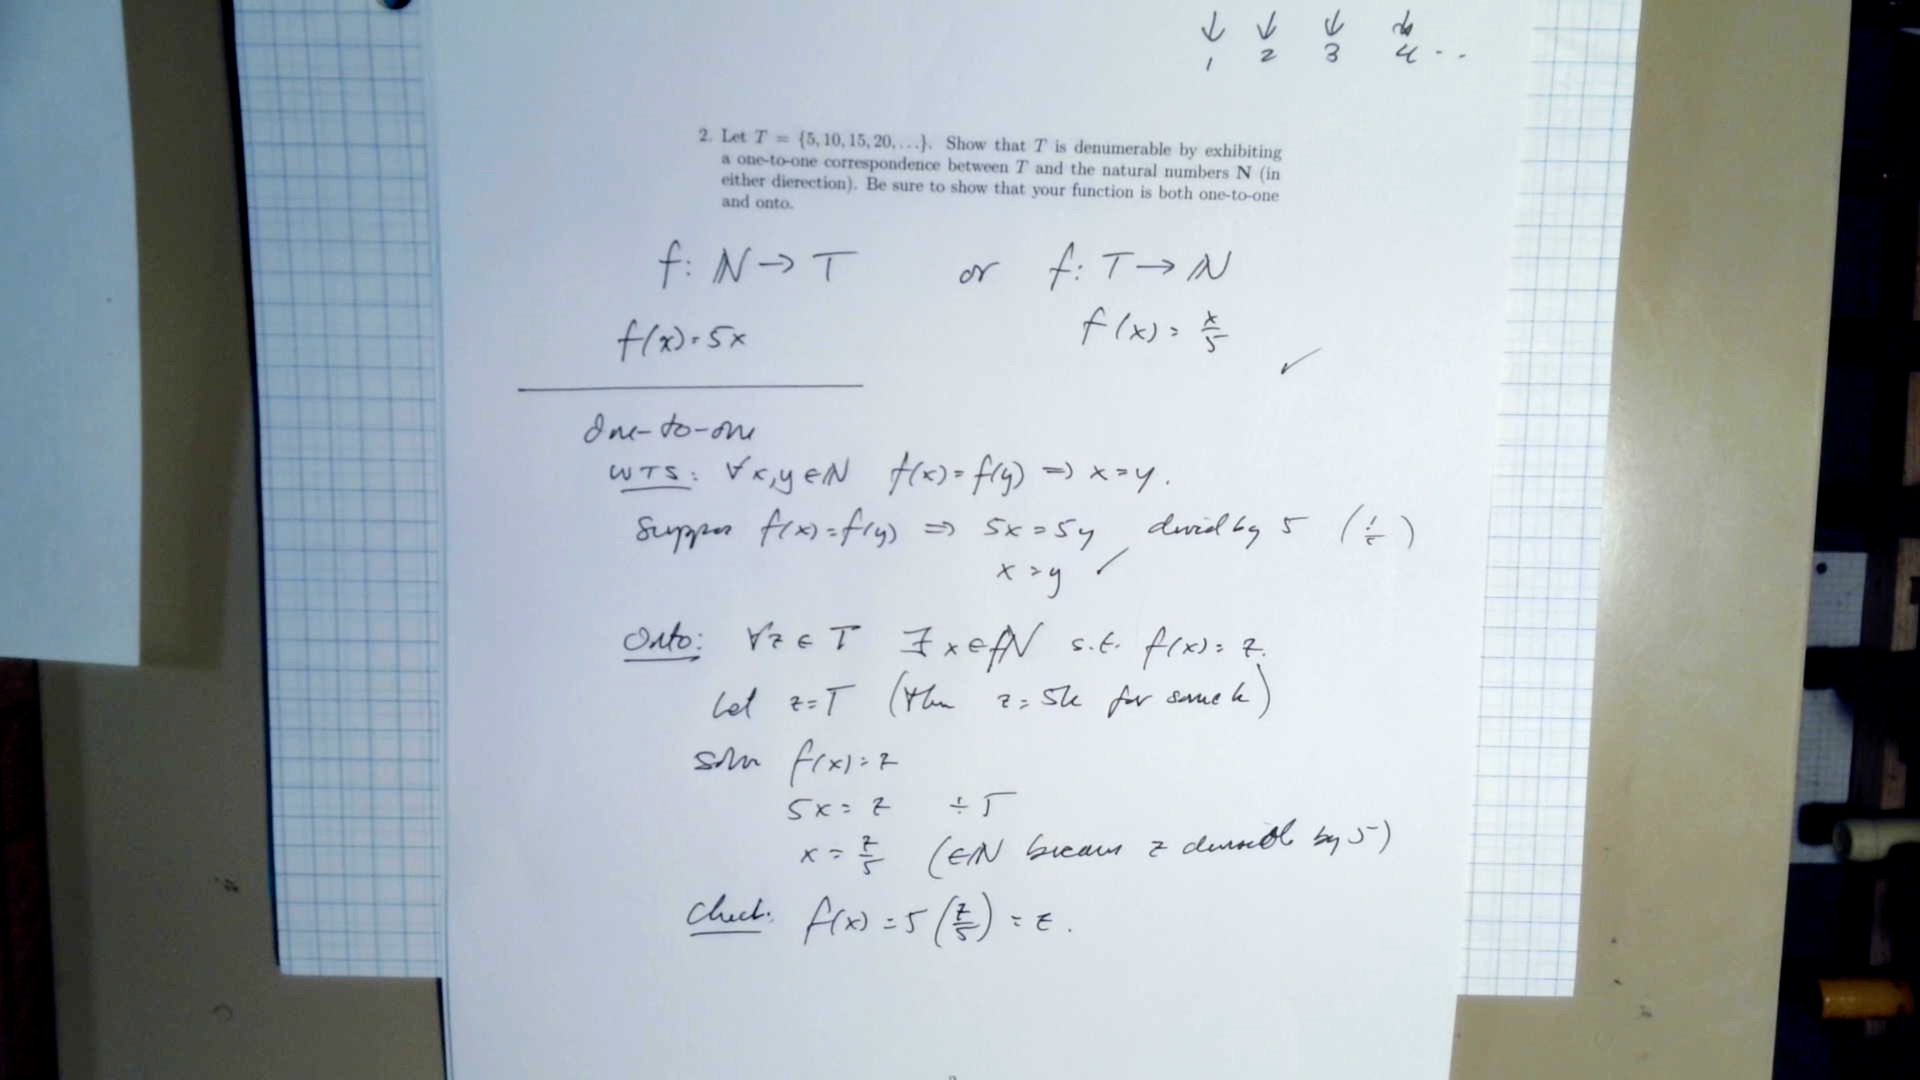 ↓ ↓ ↓ ↓
1 2 3 4 . .
2. Let T = {5, 10, 15, 20, . . .}. Show that T is denumerable by exhibiting
a one-to-one correspondence between T and the natural numbers N (in
either dierection). Be sure to show that your function is both one-to-one
and onto.
f: ℕ → T or f: T → ℕ
f(x) = 5x f(x) = x/5 ✓
One-to-one
WTS: ∀x,y ∈ ℕ f(x) = f(y) ⇒ x = y.
Suppose f(x) = f(y) ⇒ 5x = 5y divid by 5 (1/5)
x = y ✓
Onto: ∀z ∈ T ∃ x ∈ ℕ s.t. f(x) = z.
Let z = T (then z = 5k for some k)
Solve f(x) = z
5x = z ÷ 5
x = z/5 (∈ ℕ because z divisible by 5)
Check: f(x) = 5(z/5) = z.